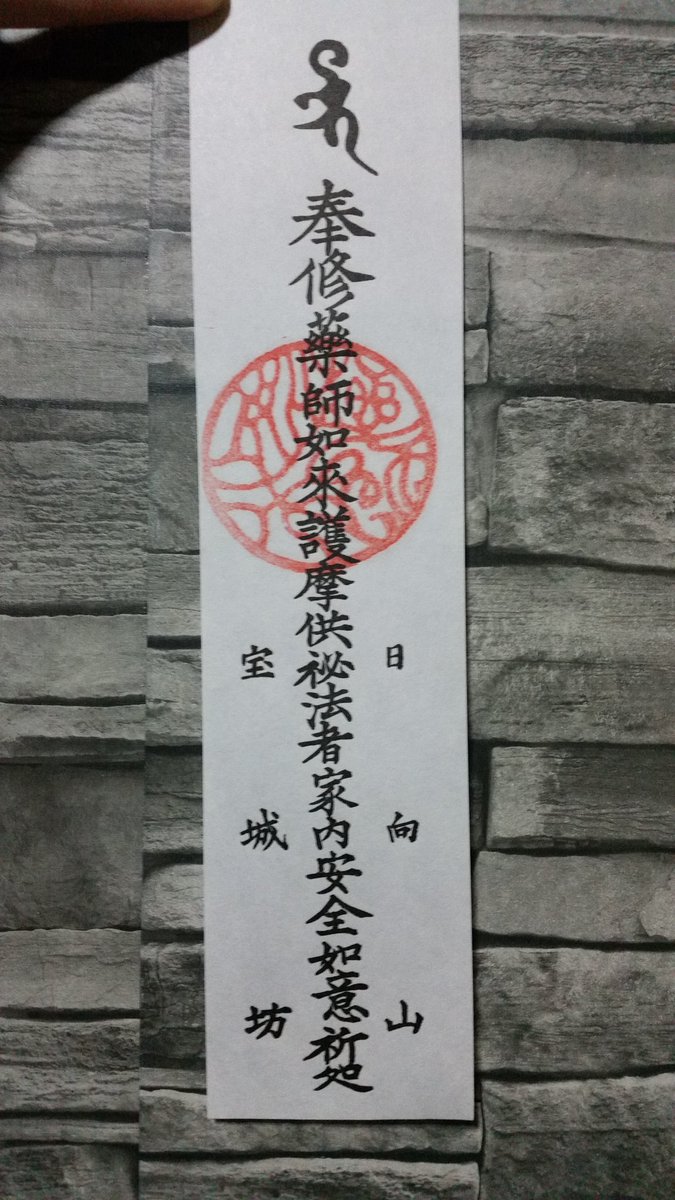 日向山
奉修藥師如來護摩供祕法者家内安全如意祈処
宝城坊